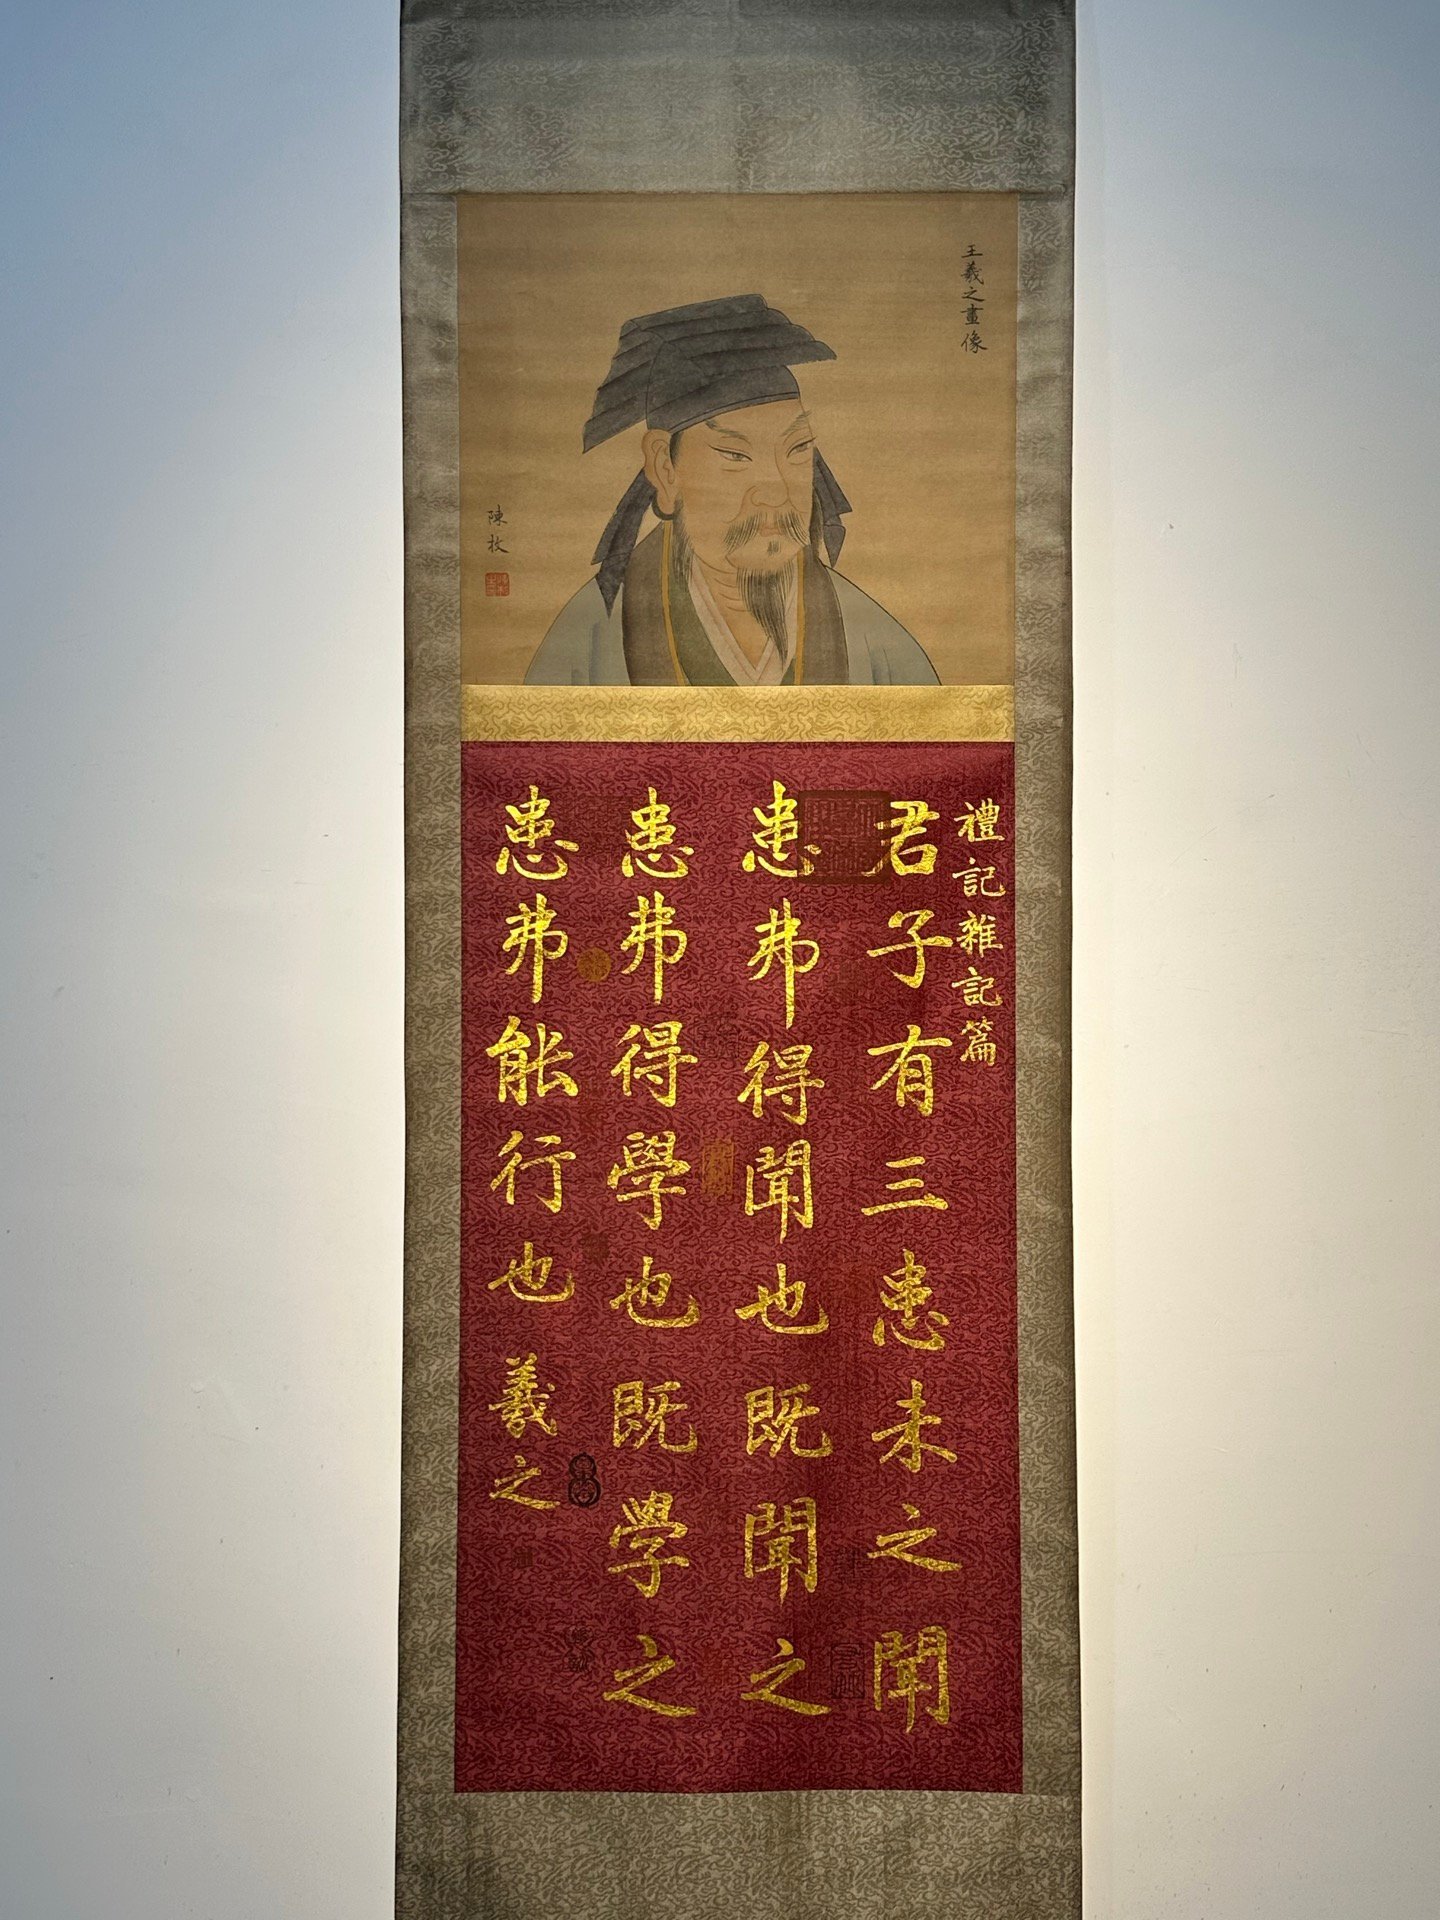 王羲之畫像
陳枚
禮記雜記篇
君子有三患未之聞
患弗得聞也既聞之
患弗得學也既学之
患弗能行也羲之